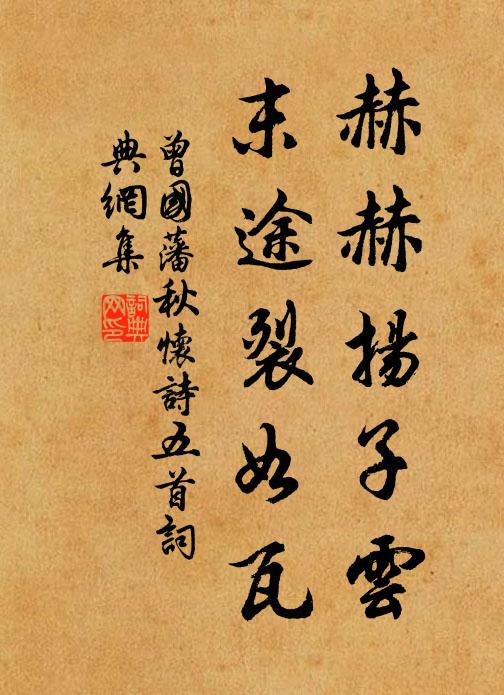 赫赫揚子雲
末途裂如瓦
曾國藩秋懷詩五首詞
典網集
詞典
网印